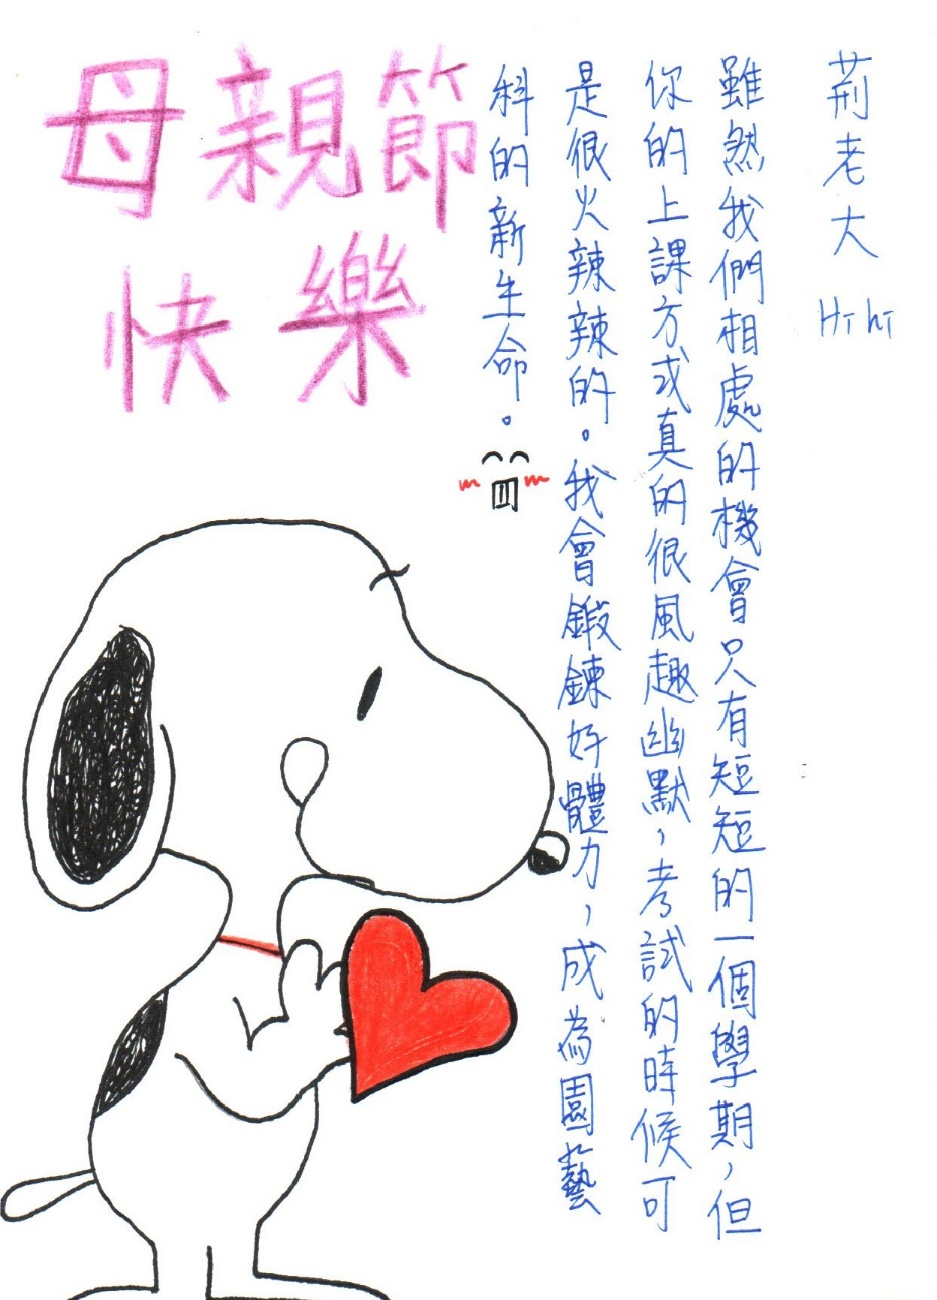 荊老大 Hi hi
雖然我們相處的機會只有短短的一個學期，但
你的上課方式真的很風趣幽默，考試的時候可
是很火辣辣的。我會鍛鍊好體力，成為園藝
科的新生命。
母親節
快樂